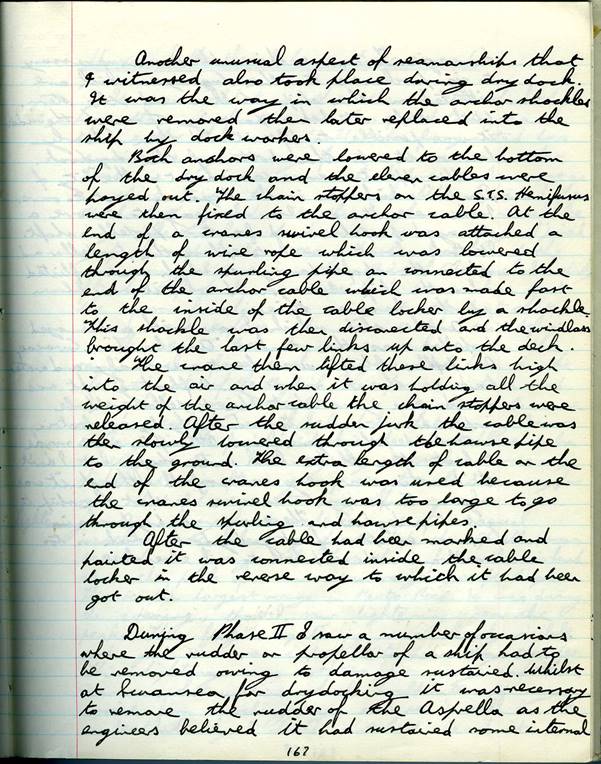 Another unusual aspect of seamanships that
I witnessed also took place during dry dock.
It was the way in which the anchor shackles
were removed then later replaced into the
ship by dock workers.
Both anchors were lowered to the bottom
of the dry dock and the eleven cables were
payed out. The chain stoppers on the S.T.S. Hemifusus
were then fixed to the anchor cable. At the
end of a cranes swivel hook was attached a
length of wire rope which was lowered
through the spurling pipe an connected to the
end of the anchor cable which was made fast
to the inside of the cable locker by a shackle.
This shackle was then disconected and the windlass
brought the last few links up onto the deck.
The crane then lifted these links high
into the air and when it was holding all the
weight of the anchor cable the chain stoppers were
released. After the sudden jerk the cable was
then slowly lowered through the hawse pipe
to the ground. The extra length of cable on the
end of the cranes hook was used because
the cranes swivel hook was too large to go
through the spurling and hawse pipes.
After the cable had been marked and
painted it was connected inside the cable
locker in the reverse way to which it had been
got out.
During Phase II I saw a number of occasions
where the rudder or propellor of a ship had to
be removed owing to damage sustained. Whilst
at Swansea for drydocking it was necessary
to remove the rudder of the Asprella as the
engineers believed it had sustained some internal
162